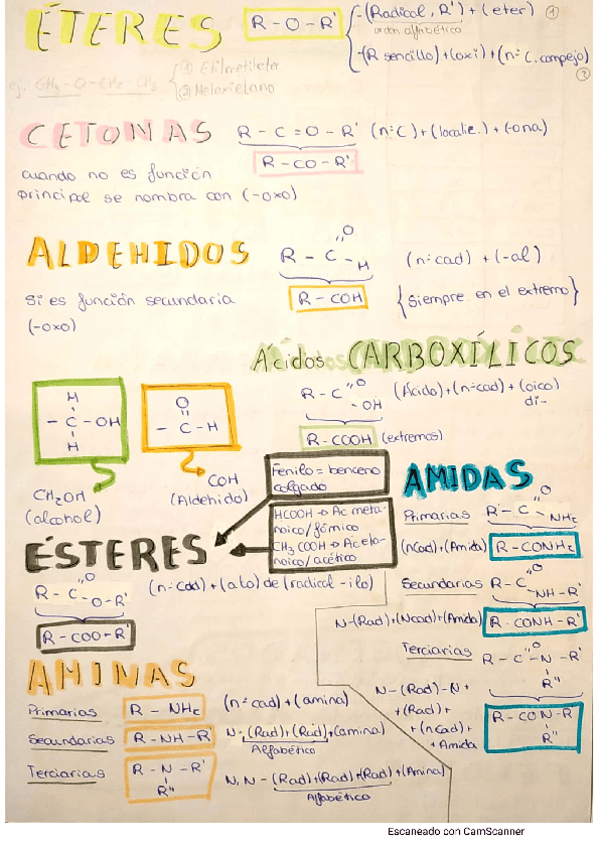 ÉTERES
R - O - R'
-(Radical, R') + (eter) ①
orden alfabético
-(R sencillo) + (oxi) + (nº C. complejo)
②
ej. CH₃ - O - CH₂ - CH₃
① Etilmetileter
② Metoxietano
CETONAS
R - C = O - R' (nº C) + (localiz.) + (-ona)
R - CO - R'
cuando no es función
principal se nombra con (-oxo)
ALDEHIDOS
R - C
O
H
(nº cad) + (-al)
R - COH
{Siempre en el extremo}
Si es función secundaria
(-oxo)
Ácidos CARBOXÍLICOS
R - C
O
- OH
(Ácido) + (nº cad) + (oico)
di-
R - COOH (extremos)
H
- C - OH
H
O
- C - H
CH₂OH
(alcohol)
COH
(Aldehido)
Fenilo = benceno
colgado
HCOOH → Ac meta-
noico/fómico
CH₃COOH → Ác eta-
noico/acético
ÉSTERES
R - C
O
O - R'
(nº cad) + (ato) de (radical - ilo)
R - COO - R'
AMIDAS
Primarias
R - C
O
NH₂
(nCad) + (Amida)
R - CONH₂
Secundarias
R - C
O
NH - R'
N - (Rad) + (Ncad) + (Amida)
R - CONH - R'
Terciarias
R - C
O
- N - R'
R''
N - (Rad) - N +
+ (Rad) +
+ (nCad) +
+ Amida
R - CON - R
R''
AMINAS
Primarias
R - NH₂
(nº cad) + (amina)
Secundarias
R - NH - R
N - (Rad) + (Rad) + (amina)
Alfabético
Terciarias
R - N - R'
R''
N, N - (Rad) + (Rad) + (Rad) + (Amina)
Alfabético
Escaneado con CamScanner